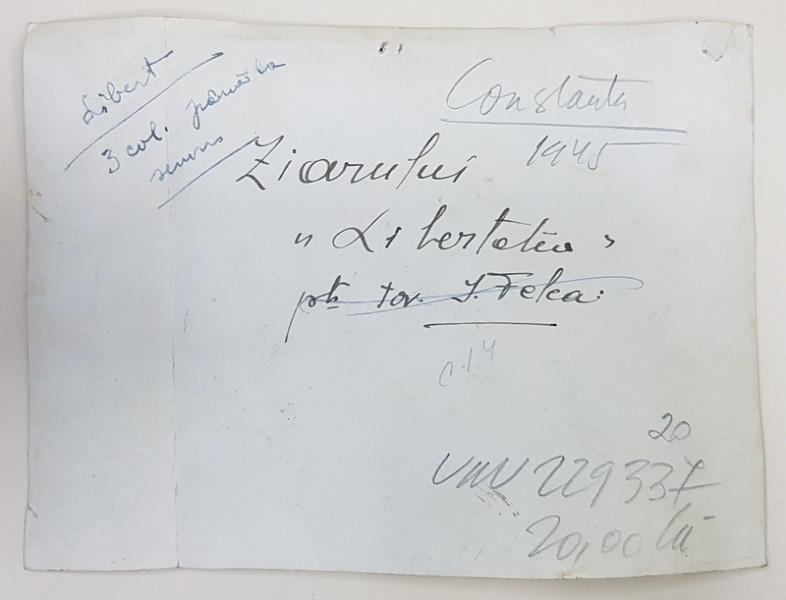 Libert
3 col. până la
semn
Constanta
1945
Ziarului
„Libertatea”
ptr. tov. I. Felea.
c. 14
20
VMV 229337
20,00 lei